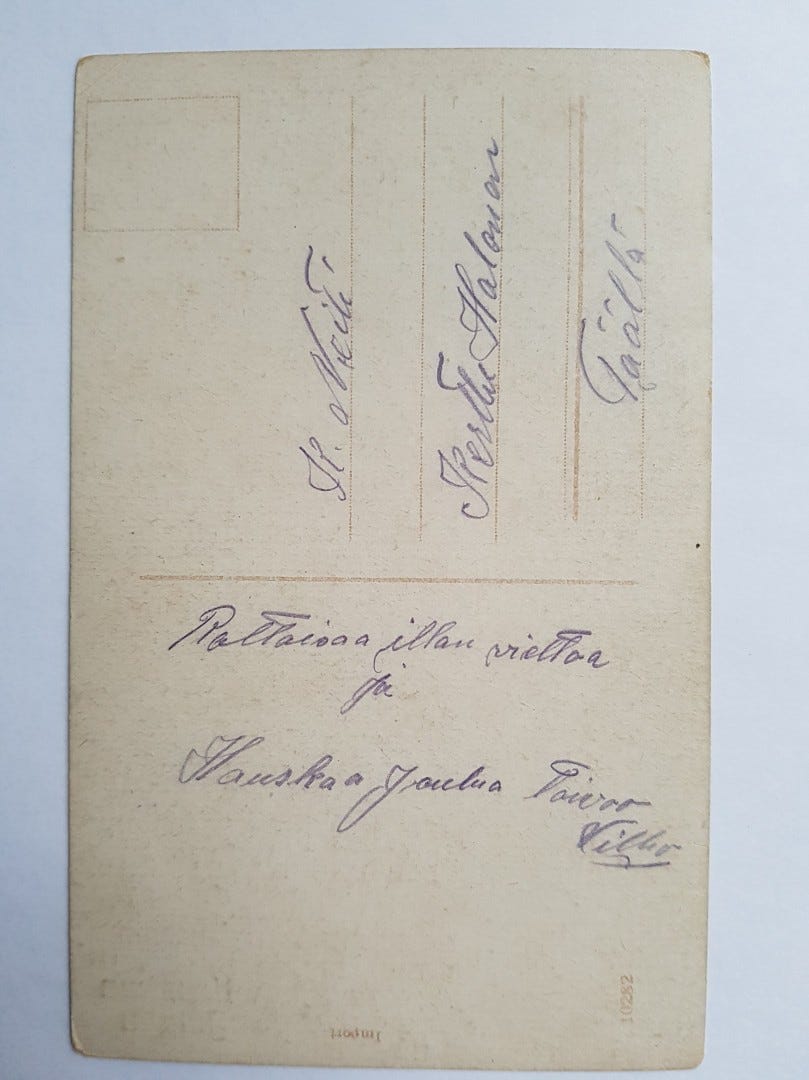 N. Neiti
Kerttu Halonen
Täällä
Rattoisaa illan viettoa
ja
Hauskaa Joulua Toivoo
Vilho
10282
Import